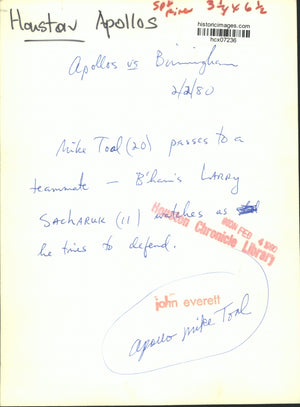 Houston Apollos
3 1/4 x 6 1/2
historicimages.com
hcx07236
Apollos vs Birmingham
2/2/80
Mike Toal (20) passes to a
teammate — B'ham's LARRY
SACHARUK (11) watches as
he tries to defend.
MON FEB 4 1980
Houston Chronicle Library
john everett
Apollo Mike Toal